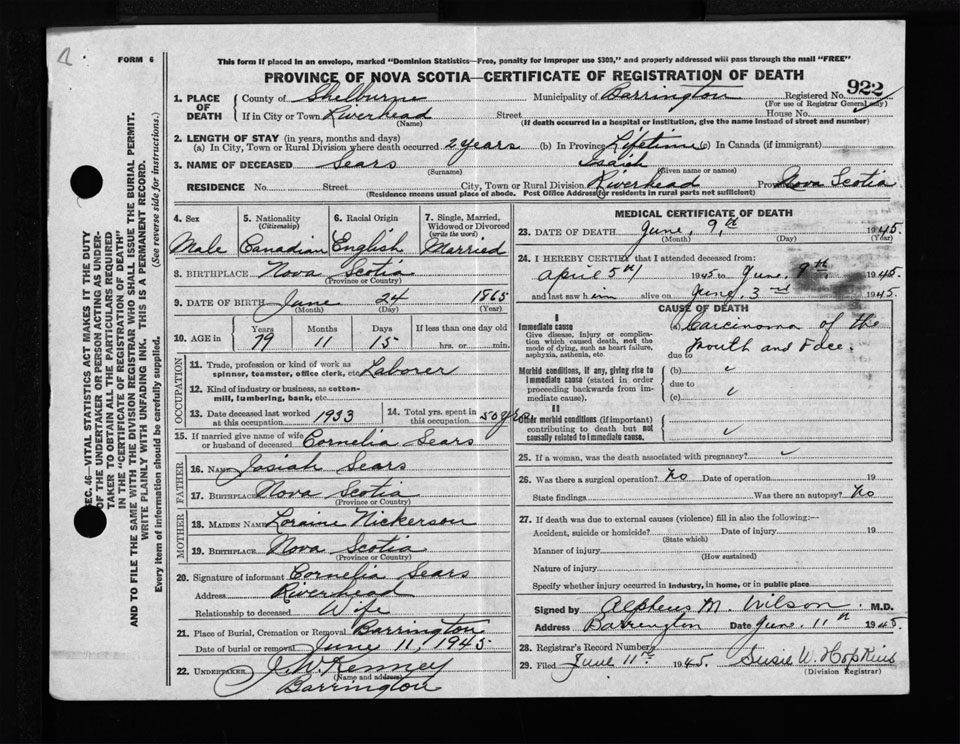 FORM 6
This form if placed in an envelope, marked "Dominion Statistics—Free, penalty for improper use $300," and properly addressed will pass through the mail "FREE"
PROVINCE OF NOVA SCOTIA—CERTIFICATE OF REGISTRATION OF DEATH
922
1. PLACE OF DEATH County of Shelburne Municipality of Barrington Registered No.
(For use of Registrar General only)
If in City or Town Riverhead Street House No.
(Name) (If death occurred in a hospital or institution, give the name instead of street and number)
2. LENGTH OF STAY (in years, months and days)
(a) In City, Town or Rural Division where death occurred 2 years (b) In Province Lifetime (c) In Canada (if immigrant)
3. NAME OF DECEASED Sears Isaiah
(Surname) (Given name or names)
RESIDENCE No. Street City, Town or Rural Division Riverhead Province Nova Scotia
(Residence means usual place of abode. Post Office Address for residents in rural parts not sufficient)
4. Sex 5. Nationality 6. Racial Origin 7. Single, Married, Widowed or Divorced
(Citizenship) (write the word)
Male Canadian English Married
8. BIRTHPLACE Nova Scotia
(Province or Country)
9. DATE OF BIRTH June 24 1865
(Month) (Day) (Year)
10. AGE in Years Months Days If less than one day old
79 11 15 hrs. or min.
OCCUPATION
11. Trade, profession or kind of work as spinner, teamster, office clerk, etc. Laborer
12. Kind of industry or business, as cotton-mill, lumbering, bank, etc.
13. Date deceased last worked at this occupation 1933 14. Total yrs. spent in this occupation 50 yrs
15. If married give name of wife or husband of deceased Cornelia Sears
FATHER
16. NAME Josiah Sears
17. BIRTHPLACE Nova Scotia
(Province or Country)
MOTHER
18. MAIDEN NAME Loraine Nickerson
19. BIRTHPLACE Nova Scotia
(Province or Country)
20. Signature of informant Cornelia Sears
Address Riverhead
Relationship to deceased Wife
21. Place of Burial, Cremation or Removal Barrington
Date of burial or removal June 11, 1945
22. UNDERTAKER J. W. Kenney
(Name and address)
Barrington
MEDICAL CERTIFICATE OF DEATH
23. DATE OF DEATH June, 9th 1945.
(Month) (Day) (Year)
24. I HEREBY CERTIFY that I attended deceased from:
April 5th 1945 to June, 9th 1945.
and last saw him alive on June, 3rd 1945.
CAUSE OF DEATH
I
Immediate cause
Give disease, injury or complication which caused death, not the mode of dying, such as heart failure, asphyxia, asthenia, etc.
Carcinoma of the
mouth and Face.
due to
Morbid conditions, if any, giving rise to immediate cause (stated in order proceeding backwards from immediate cause).
(b)
due to
(c)
II
Other morbid conditions (if important) contributing to death but not causally related to immediate cause.
25. If a woman, was the death associated with pregnancy?
26. Was there a surgical operation? No Date of operation 19
State findings Was there an autopsy? No
27. If death was due to external causes (violence) fill in also the following:—
Accident, suicide or homicide? Date of injury 19
(State which)
Manner of injury
(How sustained)
Nature of injury
Specify whether injury occurred in industry, in home, or in public place
Signed by Alpheus M. Wilson M.D.
Address Barrington Date June, 11th 1945.
28. Registrar's Record Number
29. Filed June 11th 1945. Susie W. Hopkins
(Division Registrar)
SEC. 46—VITAL STATISTICS ACT MAKES IT THE DUTY
OF THE UNDERTAKER OR PERSON ACTING AS UNDER-
TAKER TO OBTAIN ALL THE PARTICULARS REQUIRED
IN THE "CERTIFICATE OF REGISTRATION OF DEATH"
AND TO FILE THE SAME WITH THE DIVISION REGISTRAR WHO SHALL ISSUE THE BURIAL PERMIT.
WRITE PLAINLY WITH UNFADING INK. THIS IS A PERMANENT RECORD.
Every item of information should be carefully supplied. (See reverse side for instructions.)